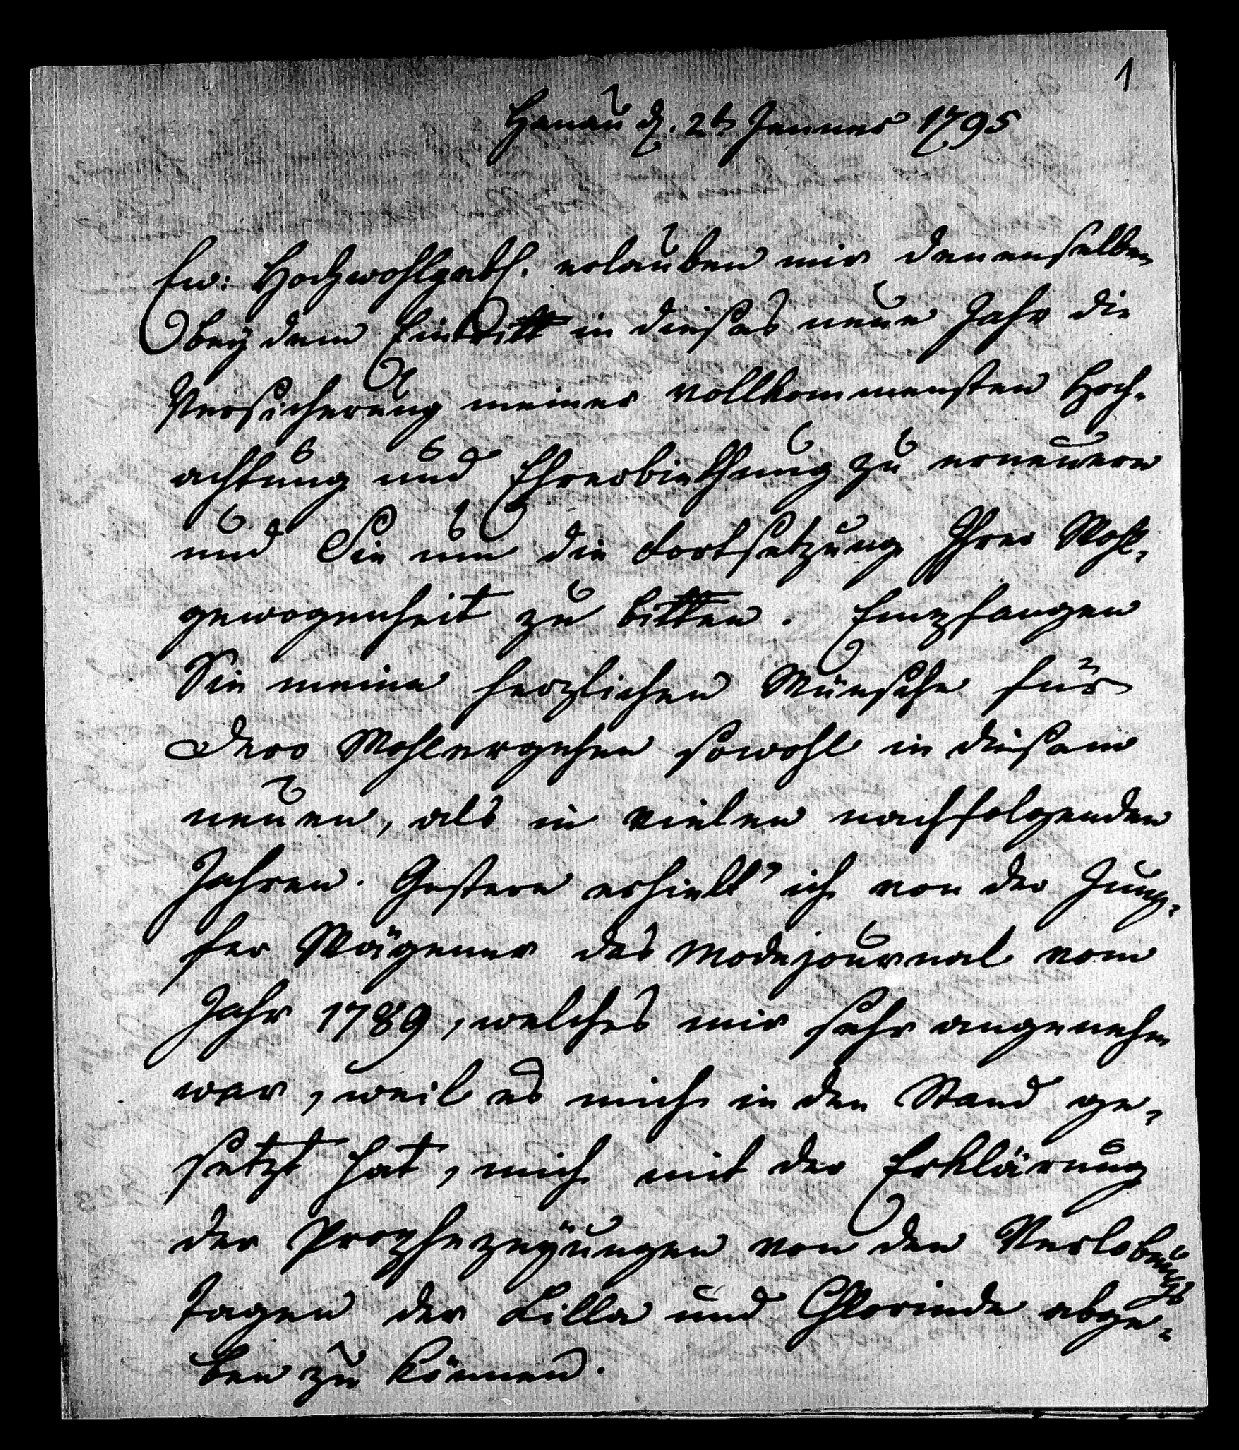 1
Hanau d. 2t Jenner 1795
Ew: Hochwohlgebh. erlauben mir denenselben
bey dem Eintritt in dieses neue Jahr die
Versicherung meiner vollkommensten Hoch-
achtung und Ehrerbiethung zu erneuern
und Sie um die Fortsetzung Ihrer Wohl-
gewogenheit zu bitten. Empfangen
Sie meine herzlichen Wünsche für
Dero Wohlergehen sowohl in diesem
neuen, als in vielen nachfolgenden
Jahren. Gestern erhielt ich von der Jung-
fer Wägener das Modejournal vom
Jahr 1789, welches mir sehr angenehm
war, weil es mich in den Stand ge-
setzt hat, mich mit der Erklärung
der Prophezeyungen von den Verlobungs
Tagen der Lilla und Chlorinde abge-
ben zu können.